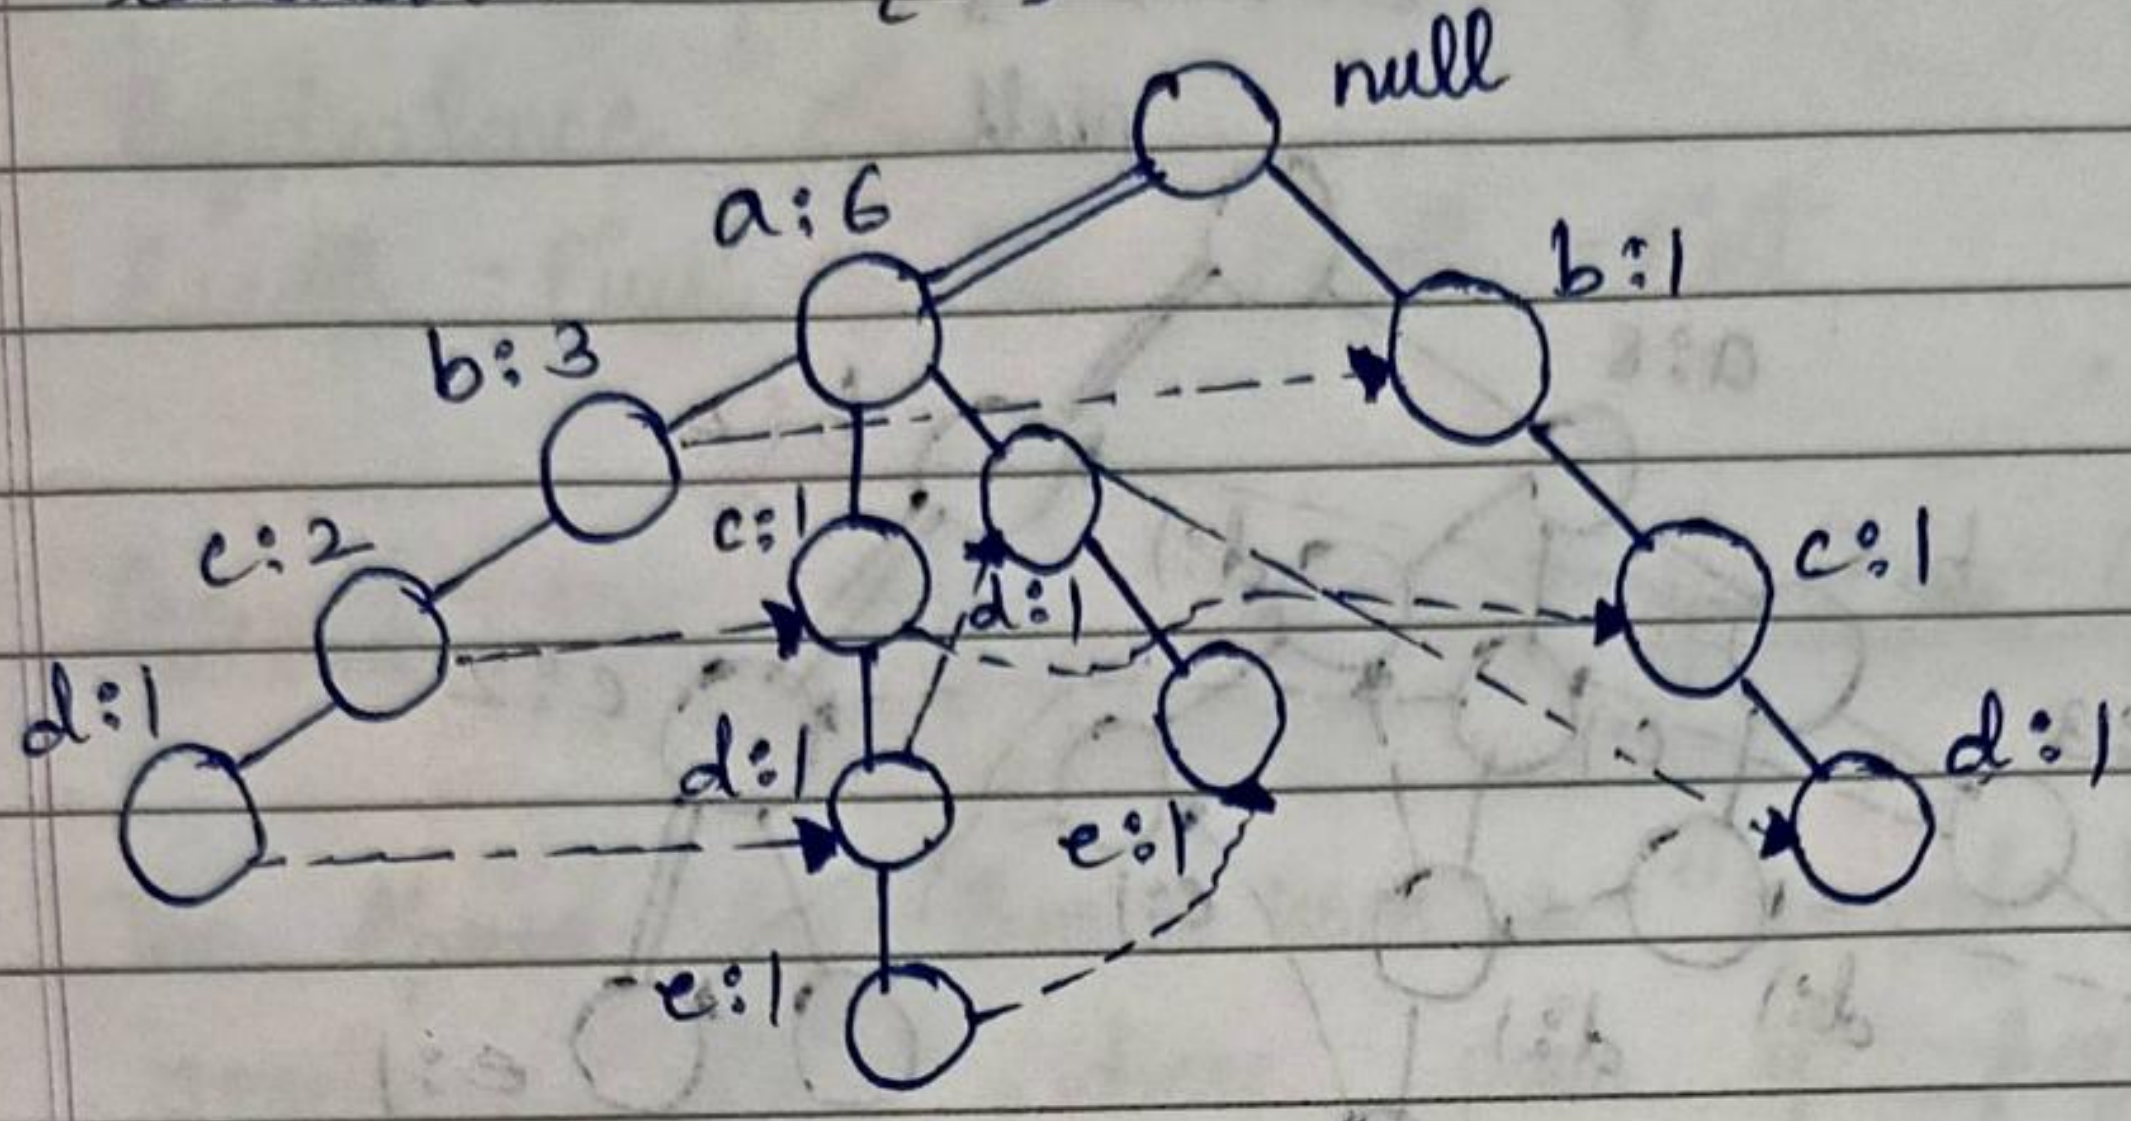 null
a:6
b:1
b:3
c:2
c:1
c:1
d:1
d:1
d:1
d:1
e:1
e:1